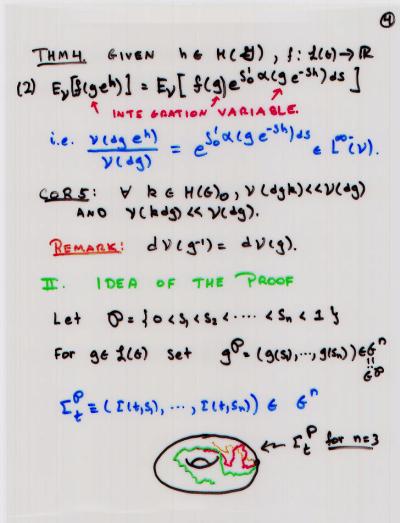 4
THM 4. GIVEN h ∈ H(𝔤), f: L(G) → ℝ
(2) E_ν[f(g e^h)] = E_ν[ f(g) e^{∫_0^1 α(g e^{-sh}) ds} ]
INTEGRATION VARIABLE.
i.e. ν(dg e^h) / ν(dg) = e^{∫_0^1 α(g e^{-sh}) ds} ∈ L^{∞-}(ν).
COR 5: ∀ k ∈ H(G)_0, ν(dgk) << ν(dg)
AND ν(kdg) << ν(dg).
REMARK: dν(g^{-1}) = dν(g).
II. IDEA OF THE PROOF
Let P = { 0 < s_1 < s_2 < ···· < s_n < 1 }
For g ∈ L(G) set g^P = (g(s_1), ..., g(s_n)) ∈ G^n
=
G^P
Σ_t^P ≡ (Σ(t,s_1), ..., Σ(t,s_n)) ∈ G^n
← Σ_t^P for n=3